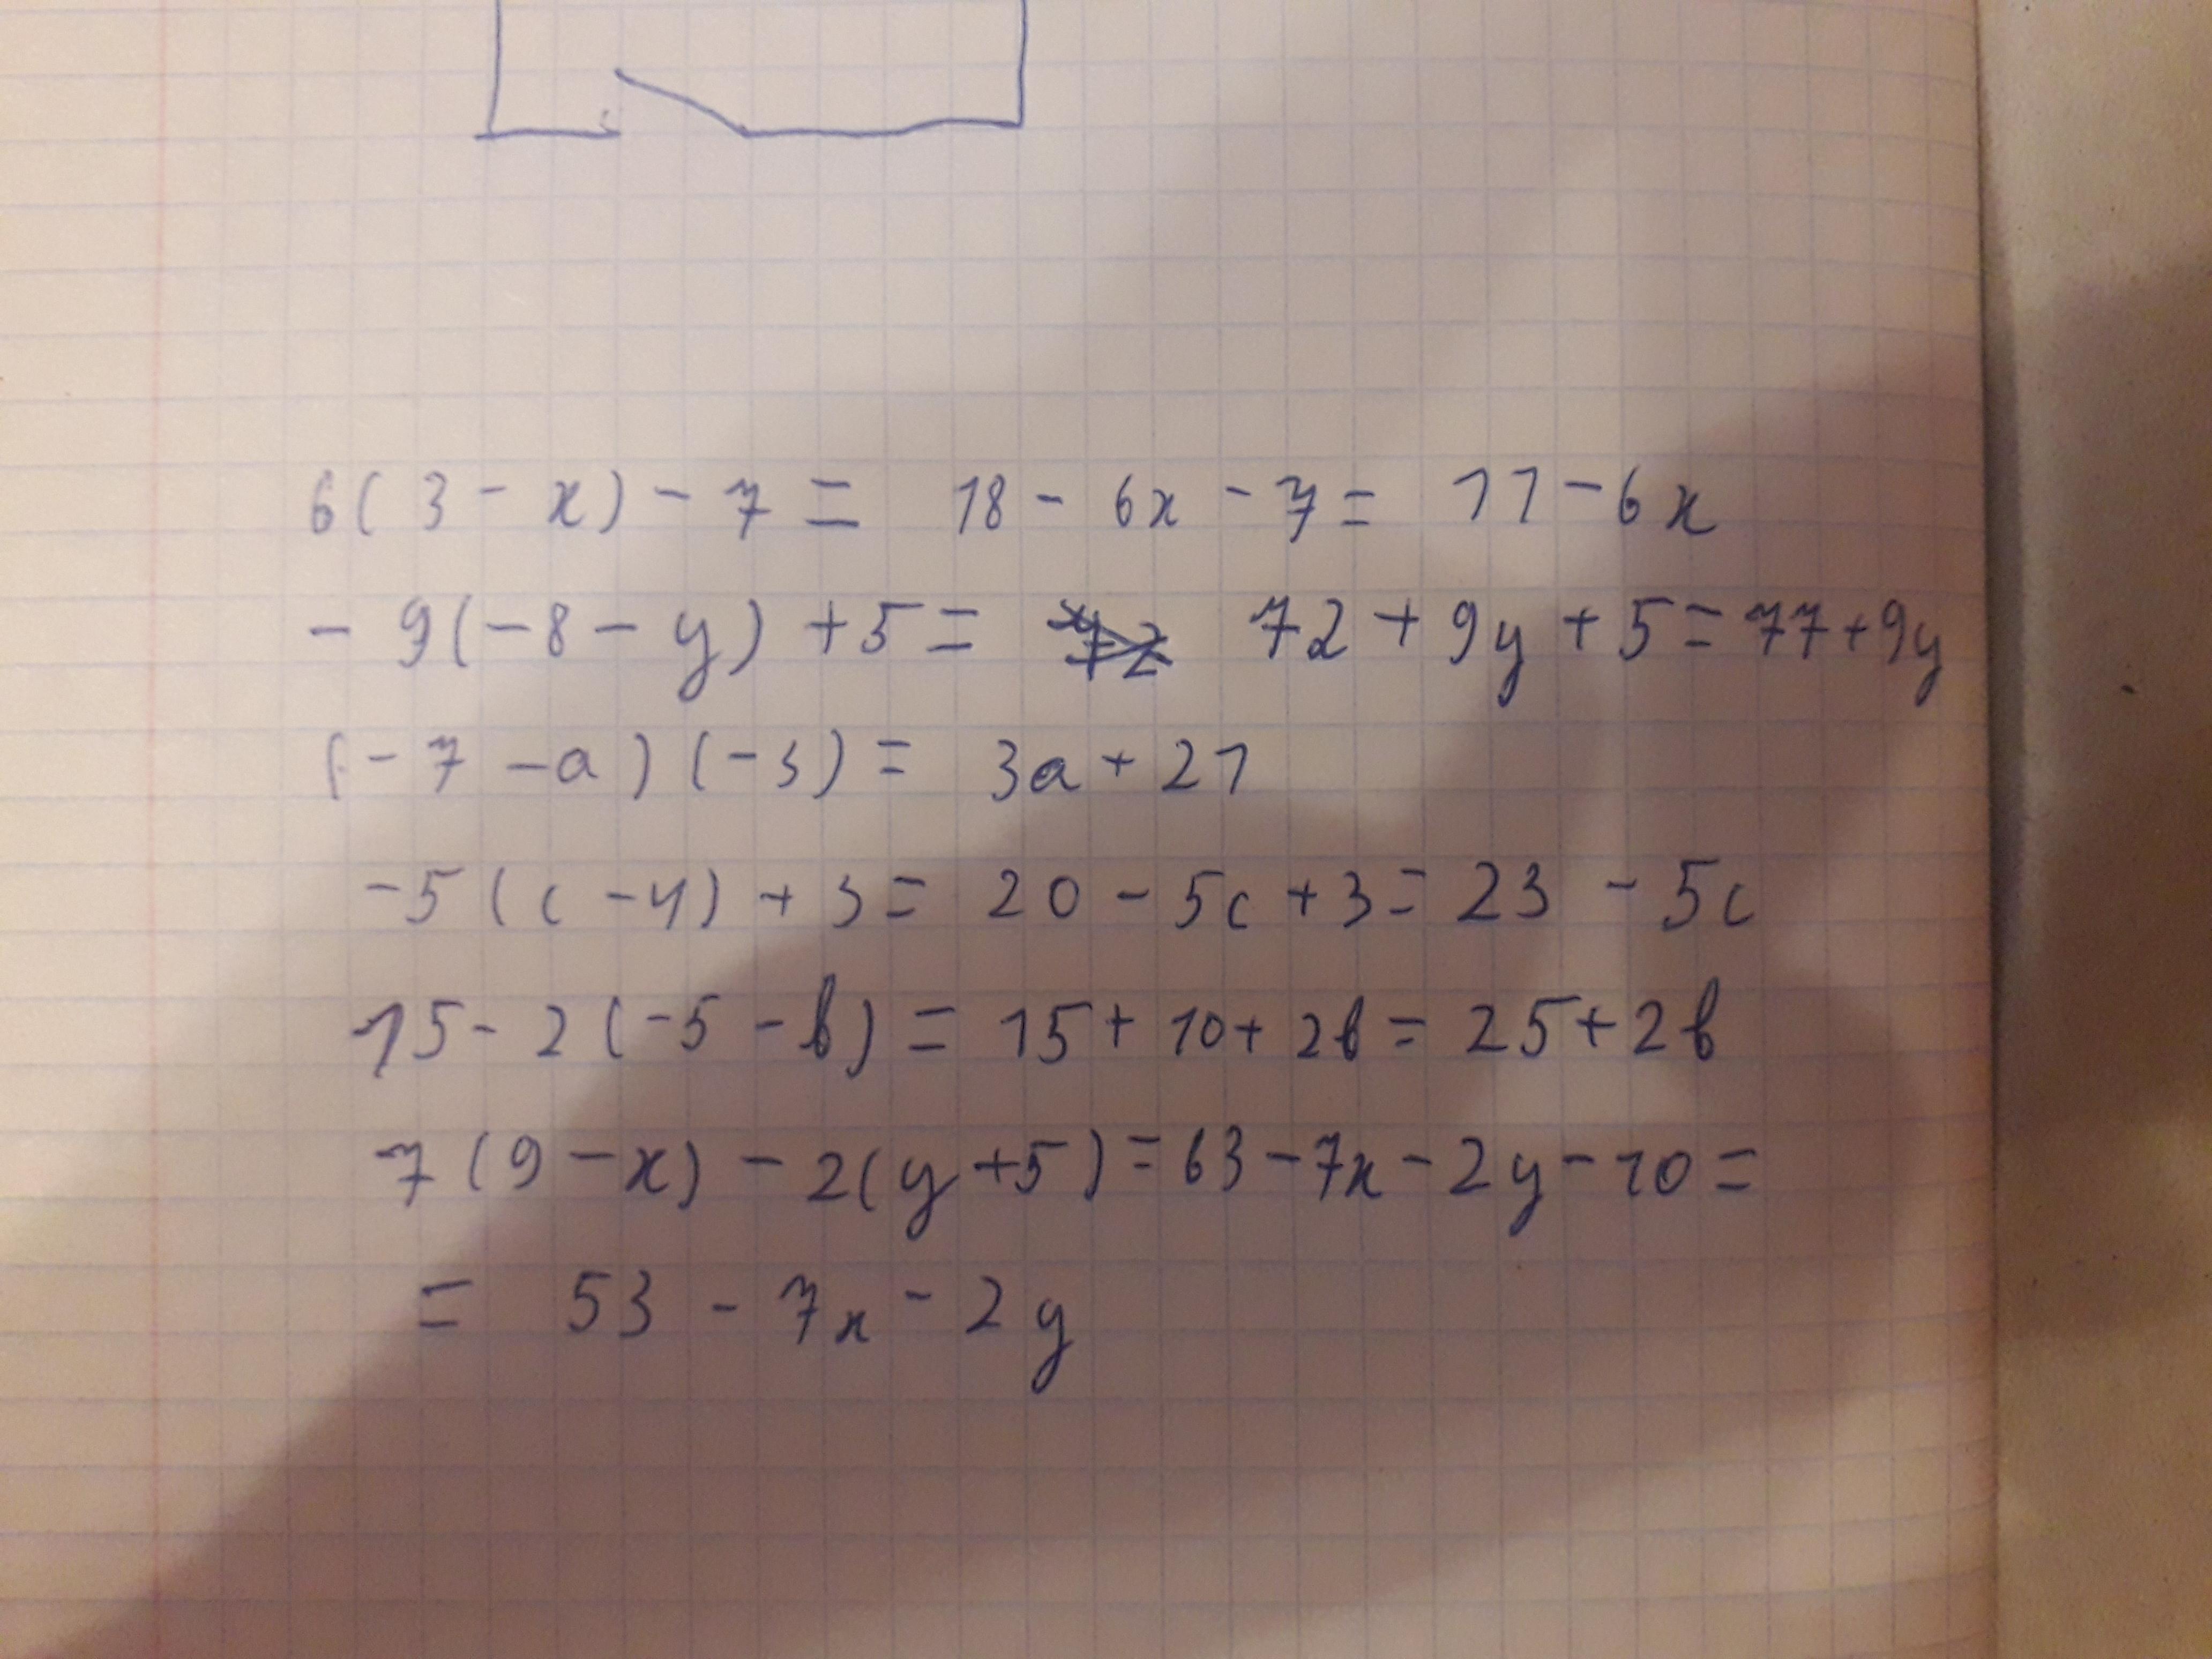 6(3-x)-7= 18-6x-7= 11-6x
-9(-8-y)+5= 72+9y+5=77+9y
(-7-a)(-3)= 3a+21
-5(c-4)+3= 20-5c+3=23-5c
15-2(-5-b)=15+10+2b=25+2b
7(9-x)-2(y+5)=63-7x-2y-10=
= 53-7x-2y